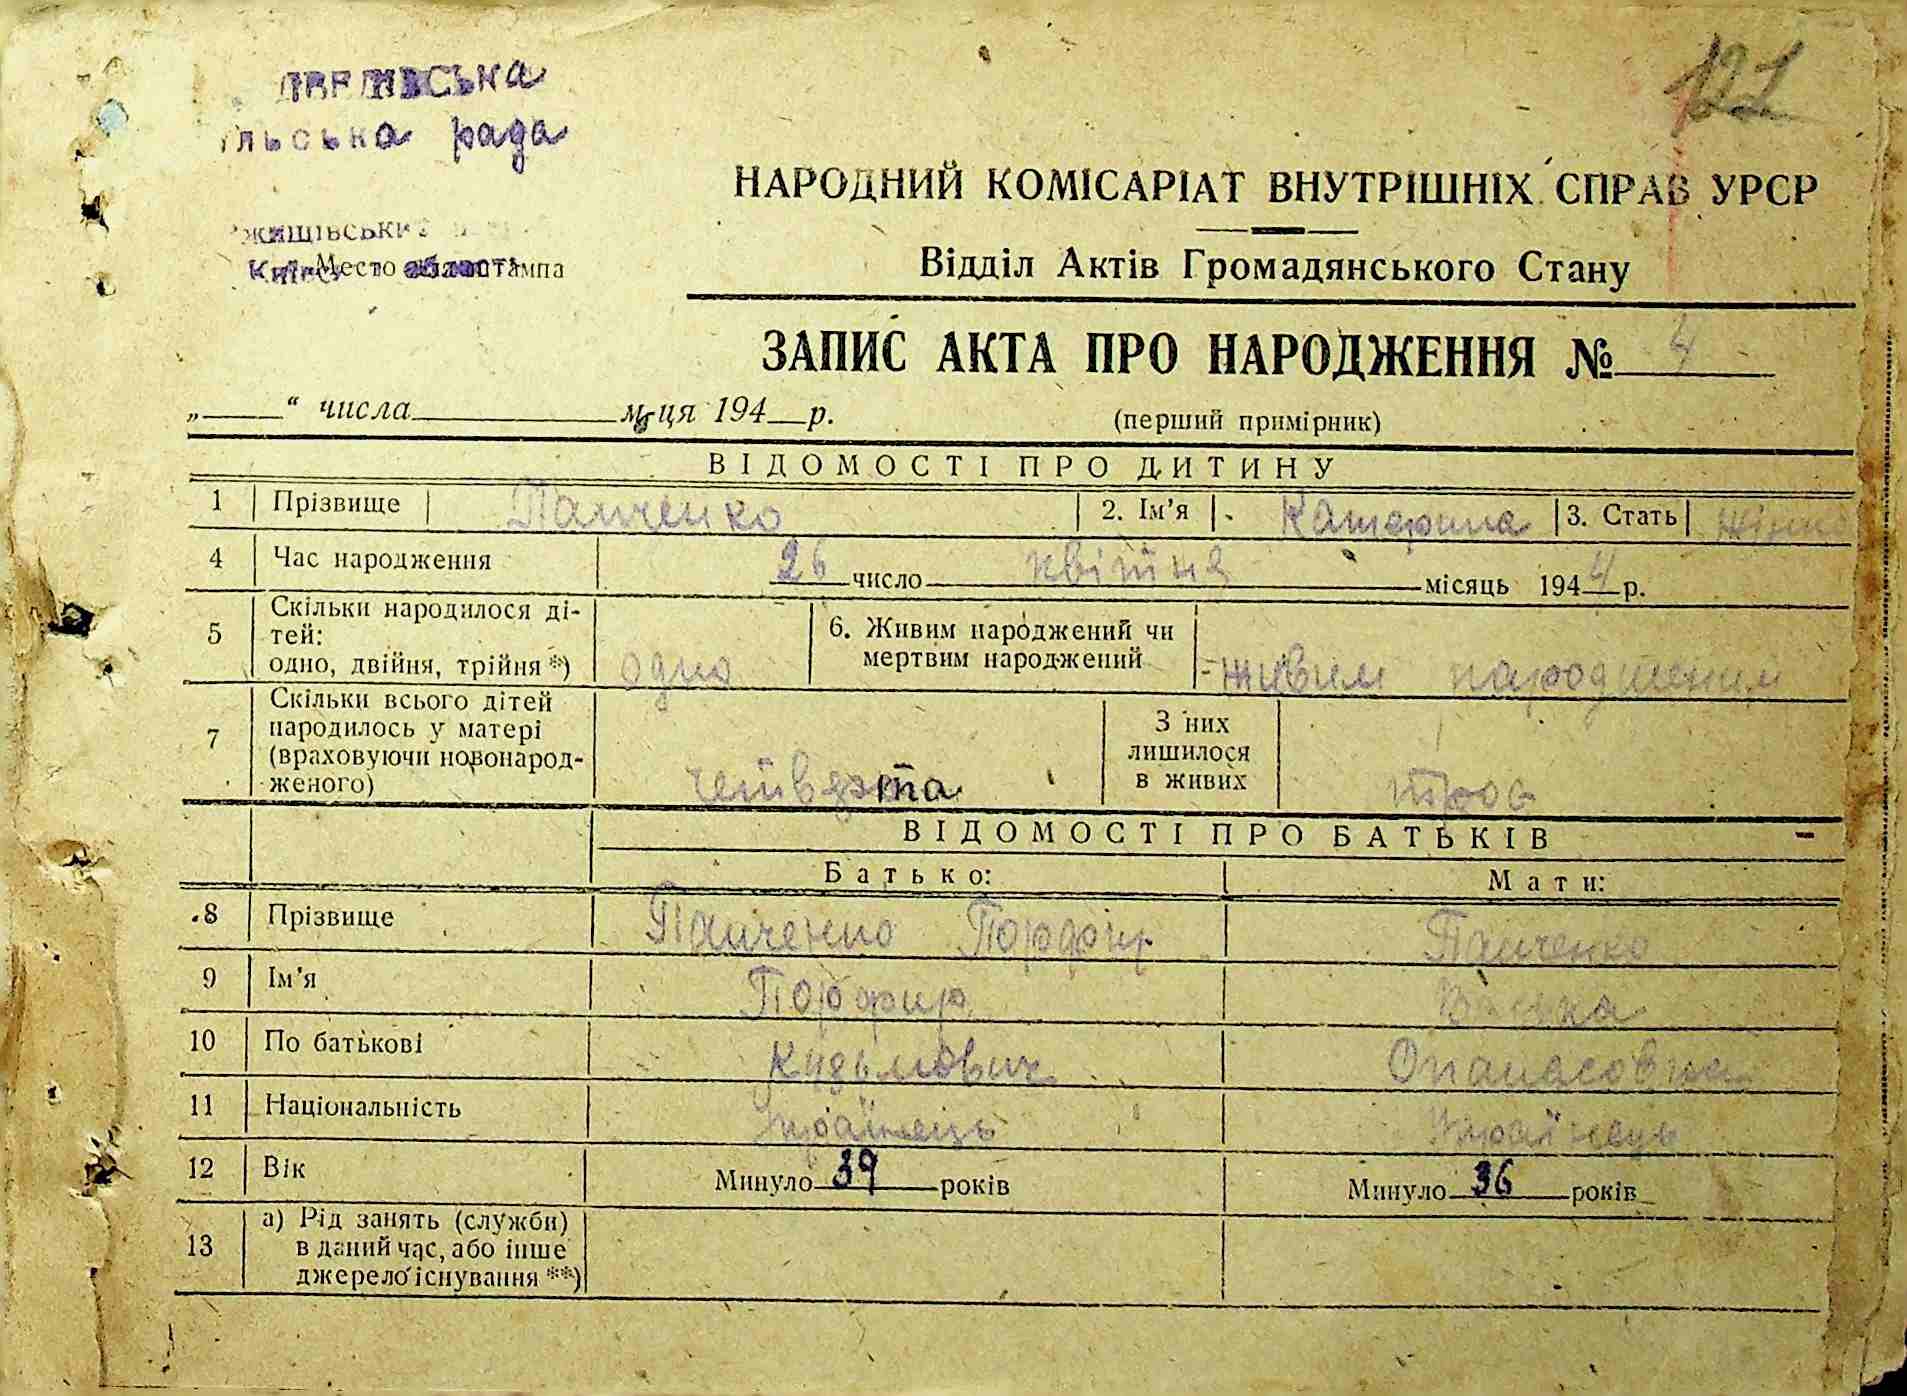 ська
льська рада
121
жищівськи
Место штампа
області
НАРОДНИЙ КОМІСАРІАТ ВНУТРІШНІХ СПРАВ УРСР
Відділ Актів Громадянського Стану
ЗАПИС АКТА ПРО НАРОДЖЕННЯ № 4
„____“ числа ________ м-ця 194__р. (перший примірник)
ВІДОМОСТІ ПРО ДИТИНУ
1 Прізвище Панченко 2. Ім'я Катерина 3. Стать жіноч
4 Час народження 26 число квітня місяць 1944 р.
5 Скільки народилося ді-
тей:
одно, двійня, трійня *) одно
6. Живим народжений чи
мертвим народжений живим народженим
7 Скільки всього дітей
народилось у матері
(враховуючи новонарод-
женого) четверта
З них
лишилося
в живих троє
ВІДОМОСТІ ПРО БАТЬКІВ
Батько: Мати:
8 Прізвище Панченко Порфир Панченко
9 Ім'я Порфир
10 По батькові Кузьмович Опанасовна
11 Національність Українець Українець
12 Вік Минуло 39 років Минуло 36 років
13 а) Рід занять (служби)
в даний час, або інше
джерело існування **)